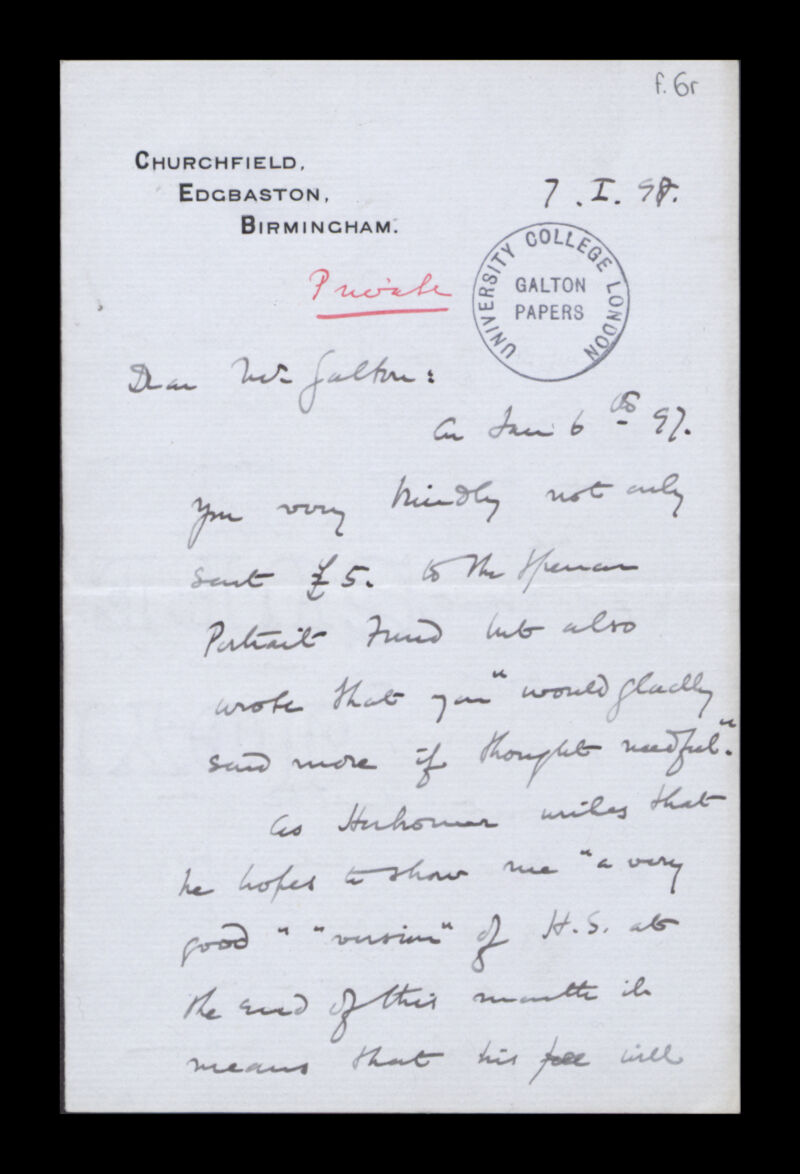 f. 6r
CHURCHFIELD,
EDGBASTON,
BIRMINGHAM.
7. I. 98.
UNIVERSITY COLLEGE LONDON
GALTON
PAPERS
Private
Dear Mr Galton:
On Jan 6th 97.
you very kindly not only
sent £5. to the Spencer
Portrait Fund but also
wrote that you "would gladly
send more if thought needful".
As Herkomer writes that
he hopes to show me "a very
good" "version" of H.S. at
the end of this month it
means that his fee will